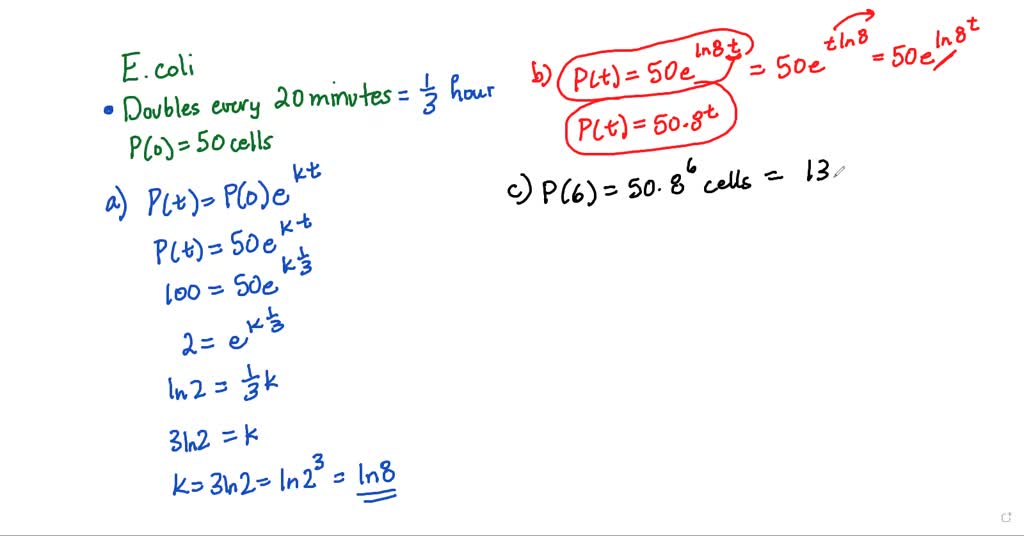 E. coli
• Doubles every 20 minutes = 1/3 hour
P(0) = 50 cells
a) P(t) = P(0)e^{kt}
P(t) = 50e^{kt}
100 = 50e^{k 1/3}
2 = e^{k 1/3}
ln2 = 1/3 k
3ln2 = k
k = 3ln2 = ln2^3 = ln8
b) P(t) = 50e^{ln8 t} = 50e^{t ln8} = 50e^{ln8^t}
P(t) = 50.8^t
c) P(6) = 50.8^6 cells = 13